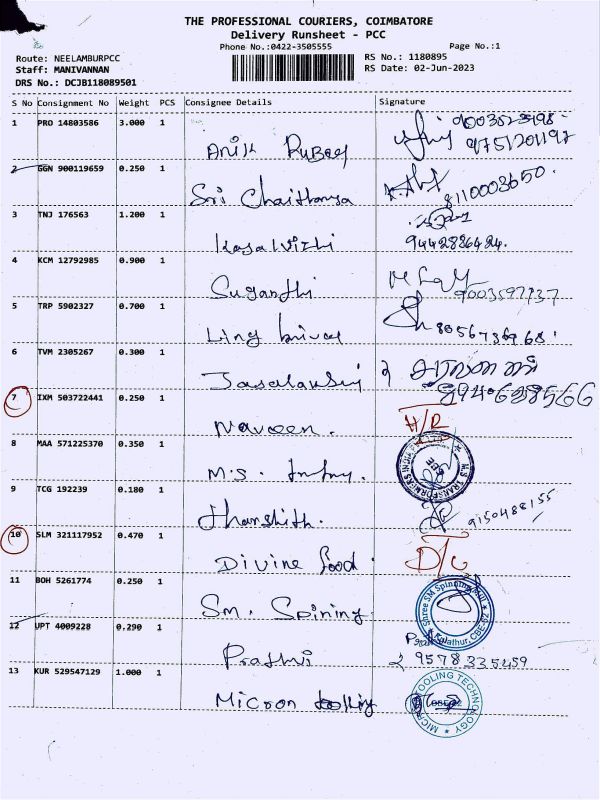 THE PROFESSIONAL COURIERS, COIMBATORE
Delivery Runsheet - PCC
Phone No.:0422-3505555 Page No.:1
Route: NEELAMBURPCC RS No.: 1180895
Staff: MANIVANNAN RS Date: 02-Jun-2023
DRS No.: DCJB118089501
S No Consignment No Weight PCS Consignee Details Signature
1 PRO 14803586 3.000 1 9003525198
9751201197
Anik Rubeey
2 GGN 900119659 0.250 1 8110003650.
Sri Chaithanya
3 TNJ 176563 1.200 1
Kasalvizhi 9442886484.
4 KCM 12792985 0.900 1
Suganthi 9003597737
5 TRP 5902327 0.700 1
8056736968.
6 TVM 2305267 0.300 1
7 IXM 503722441 0.250 1
Naveen. H/R
8 MAA 571225370 0.350 1
M.S. M.S TRANSFORMERS INDIA
9 TCG 192239 0.180 1
Harshith. 9150488155
10 SLM 321117952 0.470 1
Divine food. D/C
11 BOH 5261774 0.250 1
Sm. Spining Shree SM Spinning Kalathur, CBE
12 UPT 4009228 0.290 1
9578335459
13 KUR 529547129 1.000 1
Micron tolling MICRON TOOLING TECHNOLOGY